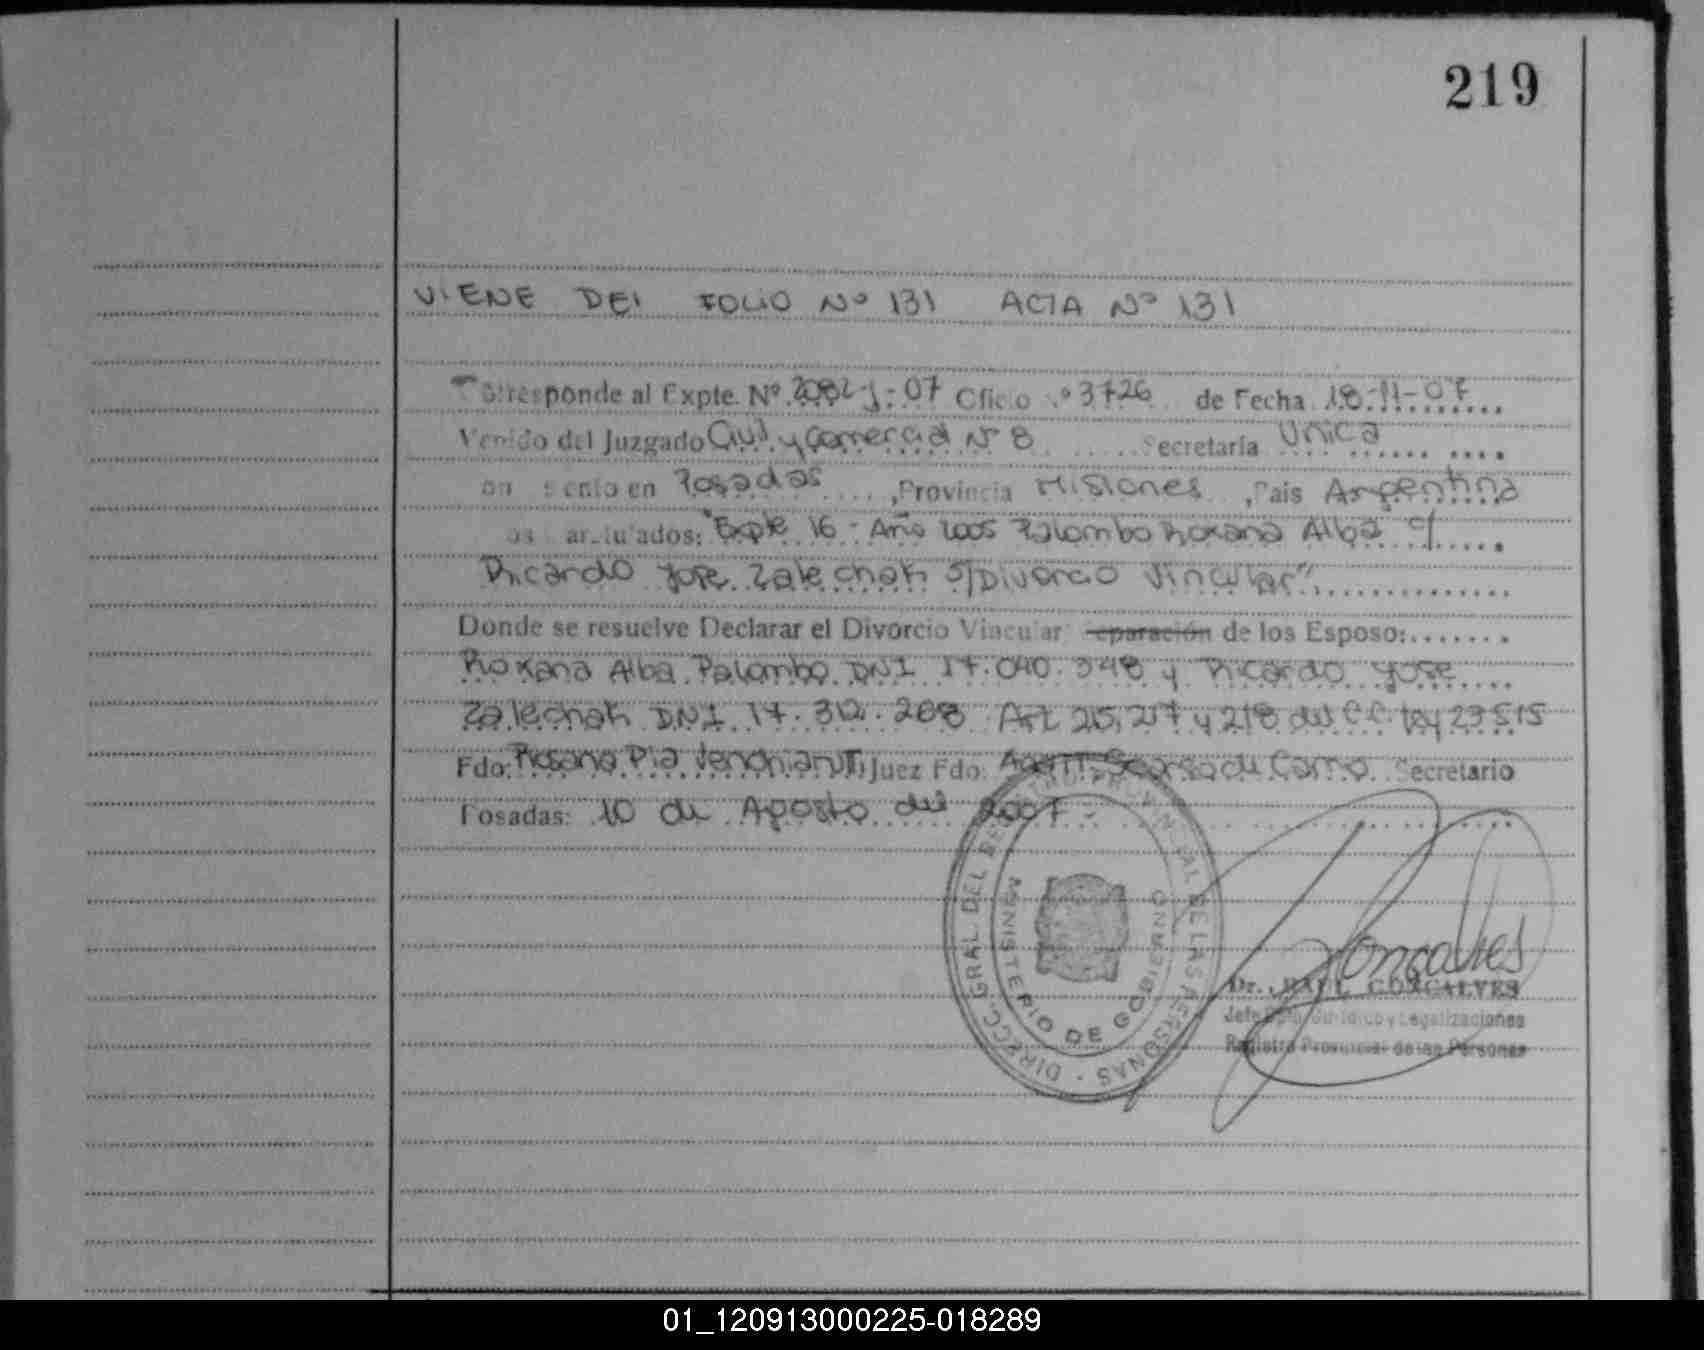 219
VIENE DEL FOLIO Nº 131 ACTA Nº 131
Corresponde al Expte. Nº 2082-J-07 Oficio Nº 3726 de Fecha 18-11-07
Venido del Juzgado Civil y Comercial Nº 8 Secretaría Unica
con asiento en Posadas, Provincia Misiones, País Argentina
"Expte 16 - Año 2005 Palombo Roxana Alba c/
Ricardo Jose Zalechak s/Divorcio Vincular"
Donde se resuelve Declarar el Divorcio Vincular Separación de los Esposo:
Roxana Alba Palombo DNI 17.040.348 y Ricardo Jose
Zalechak DNI 17.312.268 Art 215, 217 y 218 del C.C. Ley 23515
Fdo: Rosana Pia Juez Fdo: Secretario
Posadas: 10 de Agosto del 2007-
DIRECC. GRAL. DEL REGISTRO PROVINCIAL DE LAS PERSONAS -
MINISTERIO DE GOBIERNO
Goncalves
Dr. RAUL GONCALVES
Jefe Dpto. Jurídico y Legalizaciones
Registro Provincial de las Personas
01_120913000225-018289